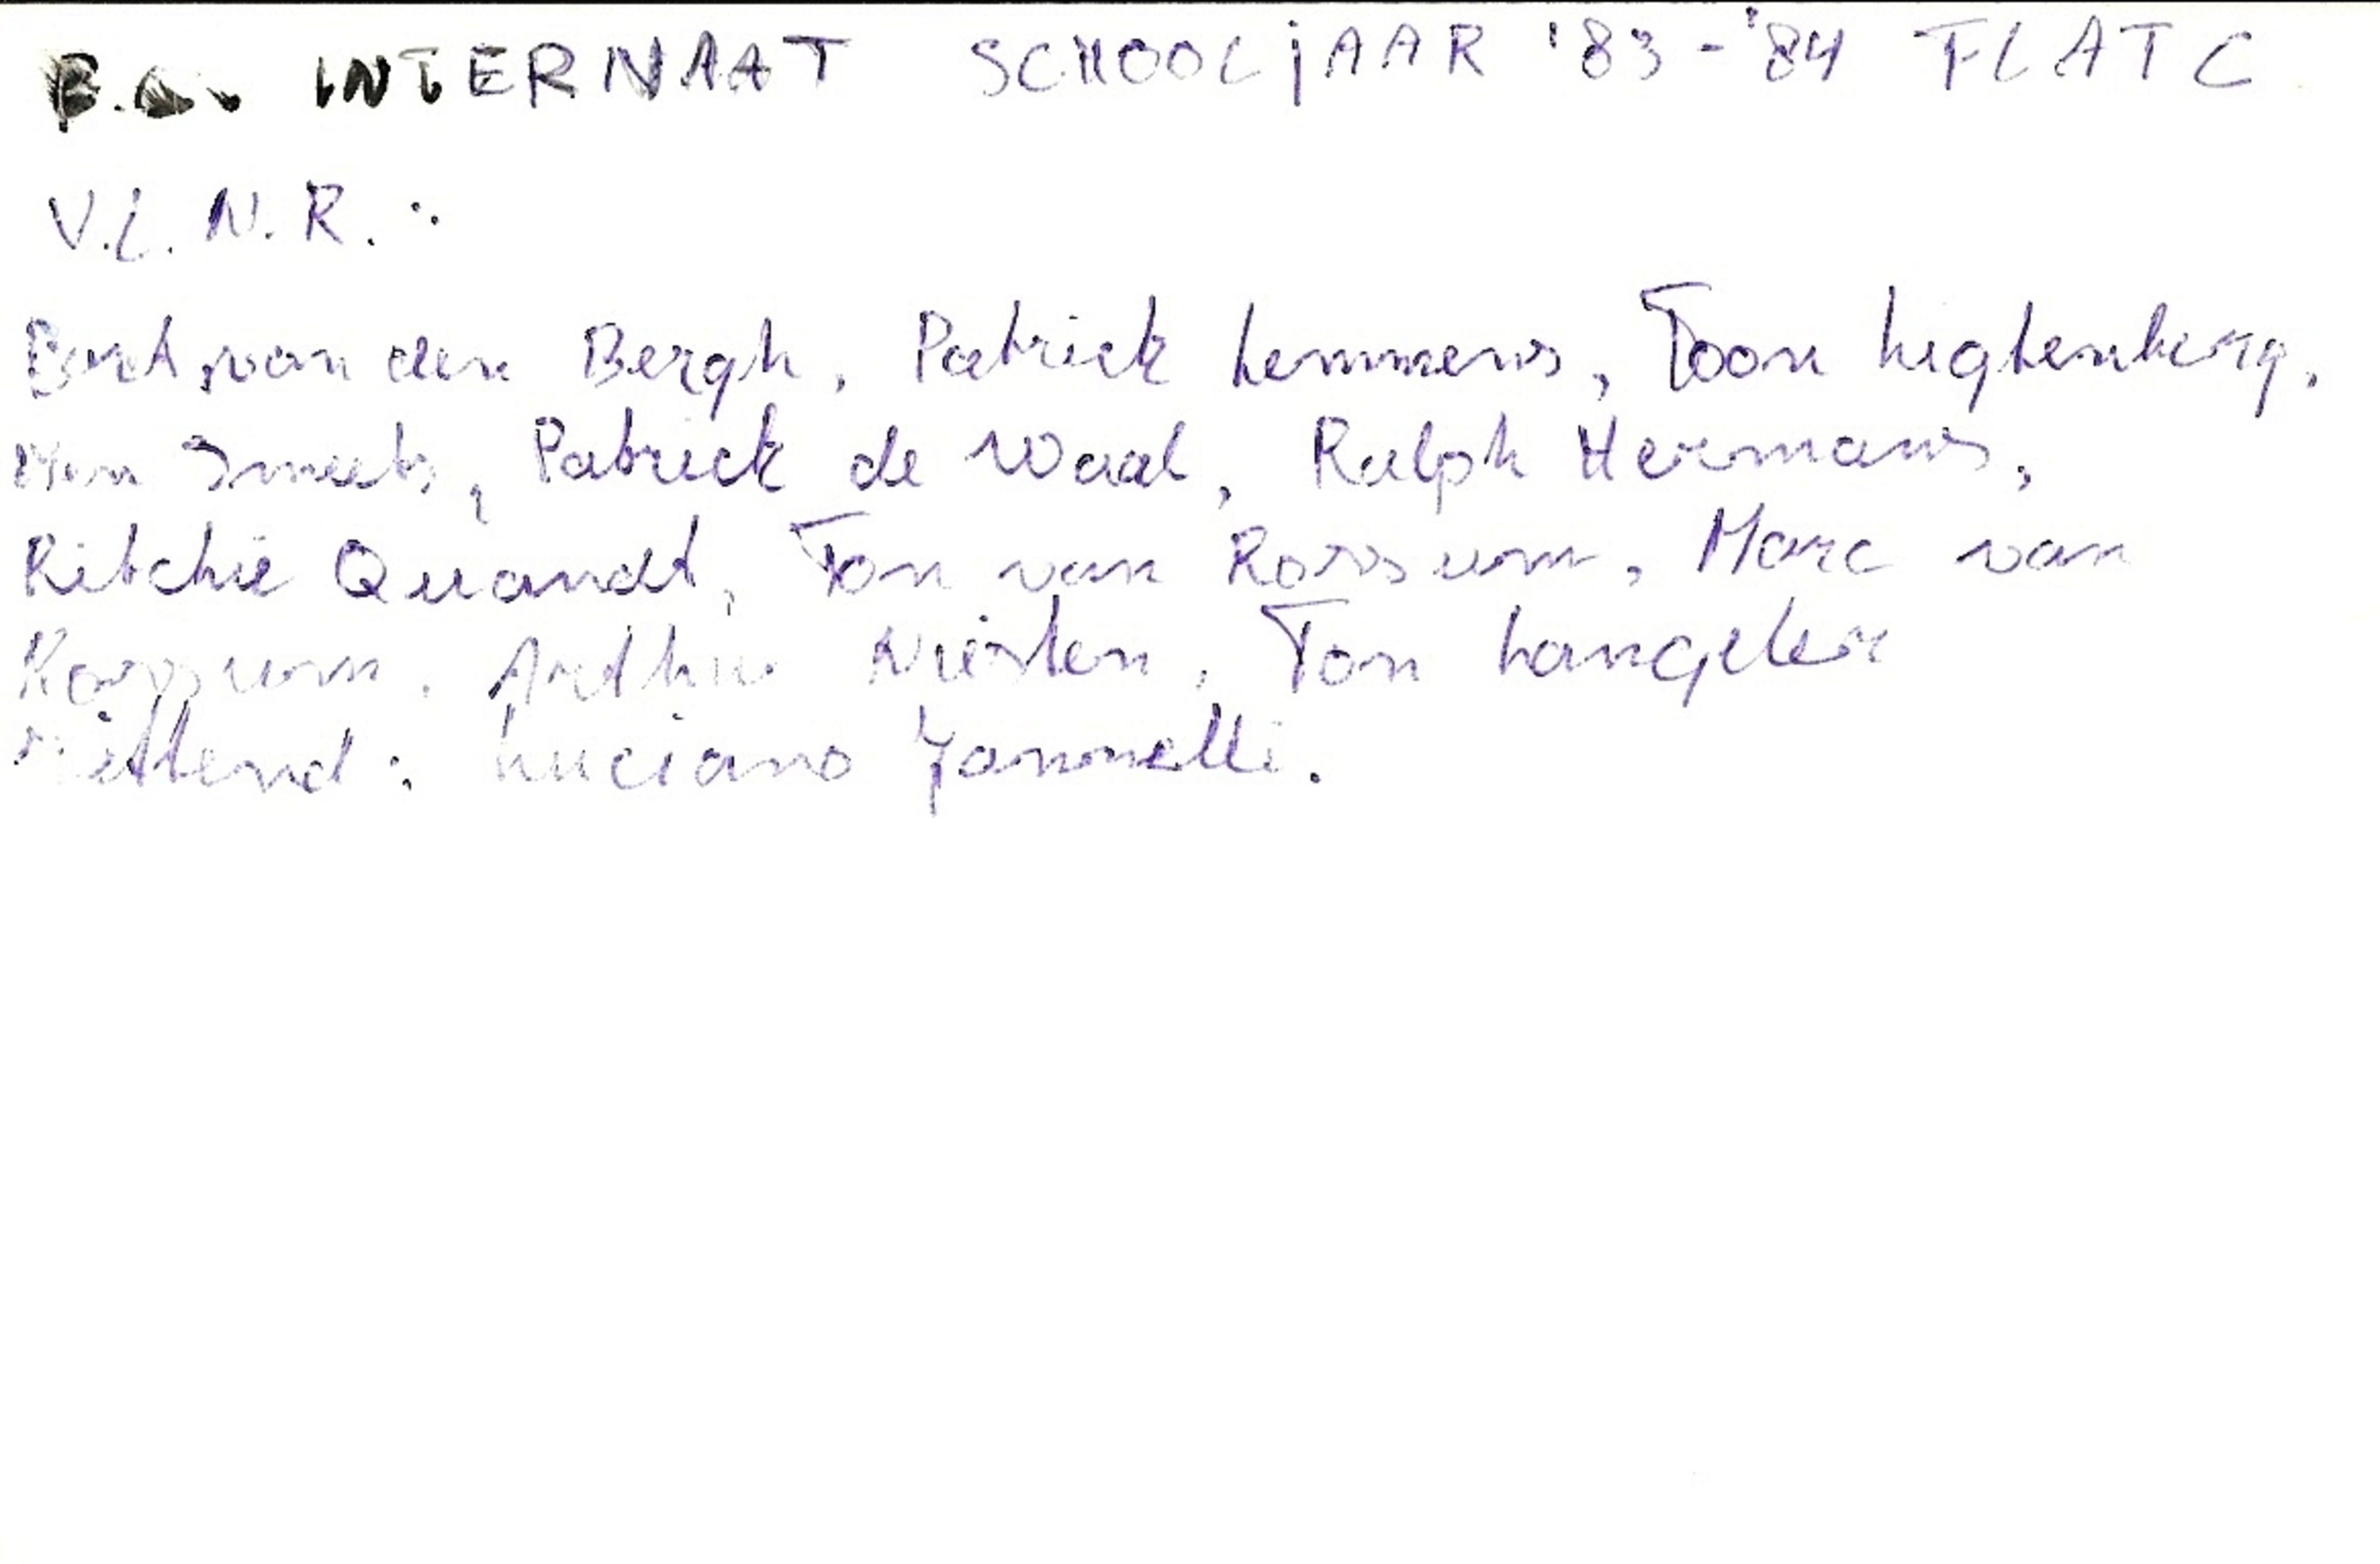 INTERNAAT SCHOOLjAAR '83-'84 FLAT C
V.L.N.R.:
Bart van den Bergh, Patrick Lemmens, Toon Ligtenberg,
Smeets, Patrick de Waal, Ralph Hermans,
Ritchie Quandt, Ton van Rossum, Marc van
Rossum, Arthur Niesten, Ton Langeler
Zittend: Luciano Jannelli.